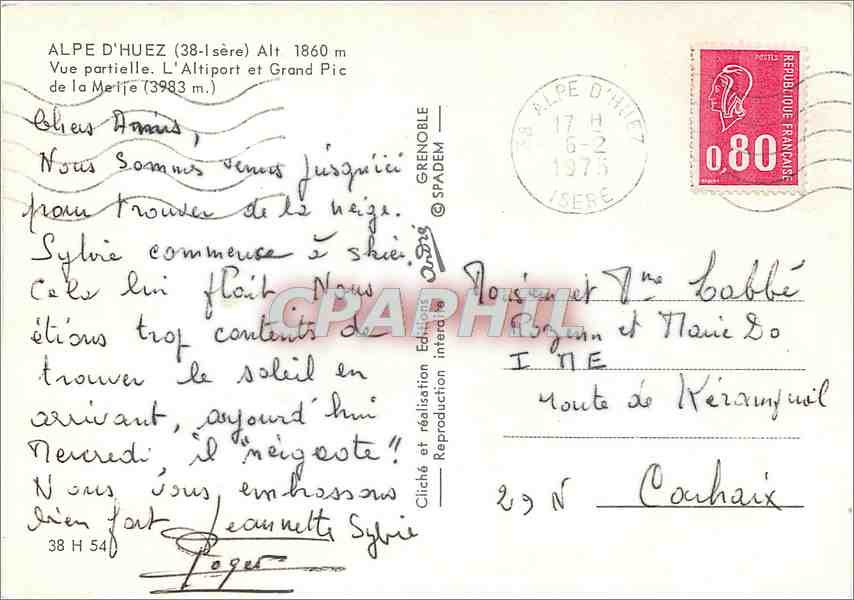 ALPE D'HUEZ (38-Isère) Alt. 1860 m
Vue partielle. L'Altiport et Grand Pic
de la Meije (3983 m.)
Chers Amis,
Nous sommes venus jusqu'ici
pour trouver de la neige.
Sylvie commence à skier.
Cela lui plait. Nous
étions trop contents de
trouver le soleil en
arrivant, aujourd'hui
Mercredi, il "neigeote"!
Nous vous embrassons
bien fort Jeannette Sylvie
Roger
38 H 54
Cliché et réalisation Editions André GRENOBLE
Reproduction interdite © SPADEM
38 ALPE D'HUEZ
17 H
6-2
1975
ISERE
POSTES
REPUBLIQUE FRANÇAISE
0,80
CPAPHIL
et Mme Labbé
et Marie Do
IME
route de
29 N Carhaix